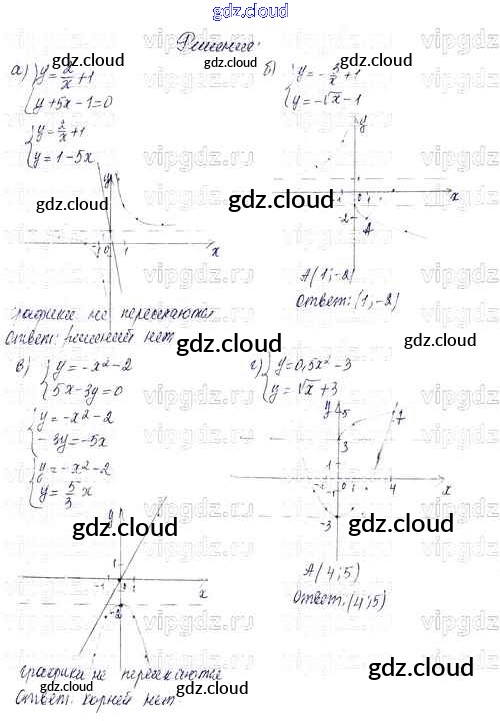 gdz.cloud
Решение:
а) { y = 2/x + 1
y + 5x - 1 = 0
{ y = 2/x + 1
y = 1 - 5x
y
-1 0 1
x
графики не пересекаются
Ответ: решений нет
б) { y = -2/x + 1
y = -√x - 1
y
-1 0 1
x
-2
A
A(1; -2)
Ответ: (1, -2)
в) { y = -x² - 2
5x - 3y = 0
{ y = -x² - 2
-3y = -5x
{ y = -x² - 2
y = 5/3 x
y
1
-1 1
x
-2
графики не пересекаются
Ответ: корней нет.
г) { y = 0,5x² - 3
y = √x + 3
y
5
3
1
-1 0 1 4
x
-3
A(4; 5)
Ответ: (4; 5)
gdz.cloud
gdz.cloud
gdz.cloud
gdz.cloud
gdz.cloud
gdz.cloud
gdz.cloud
gdz.cloud
gdz.cloud
gdz.cloud
vipgdz.ru